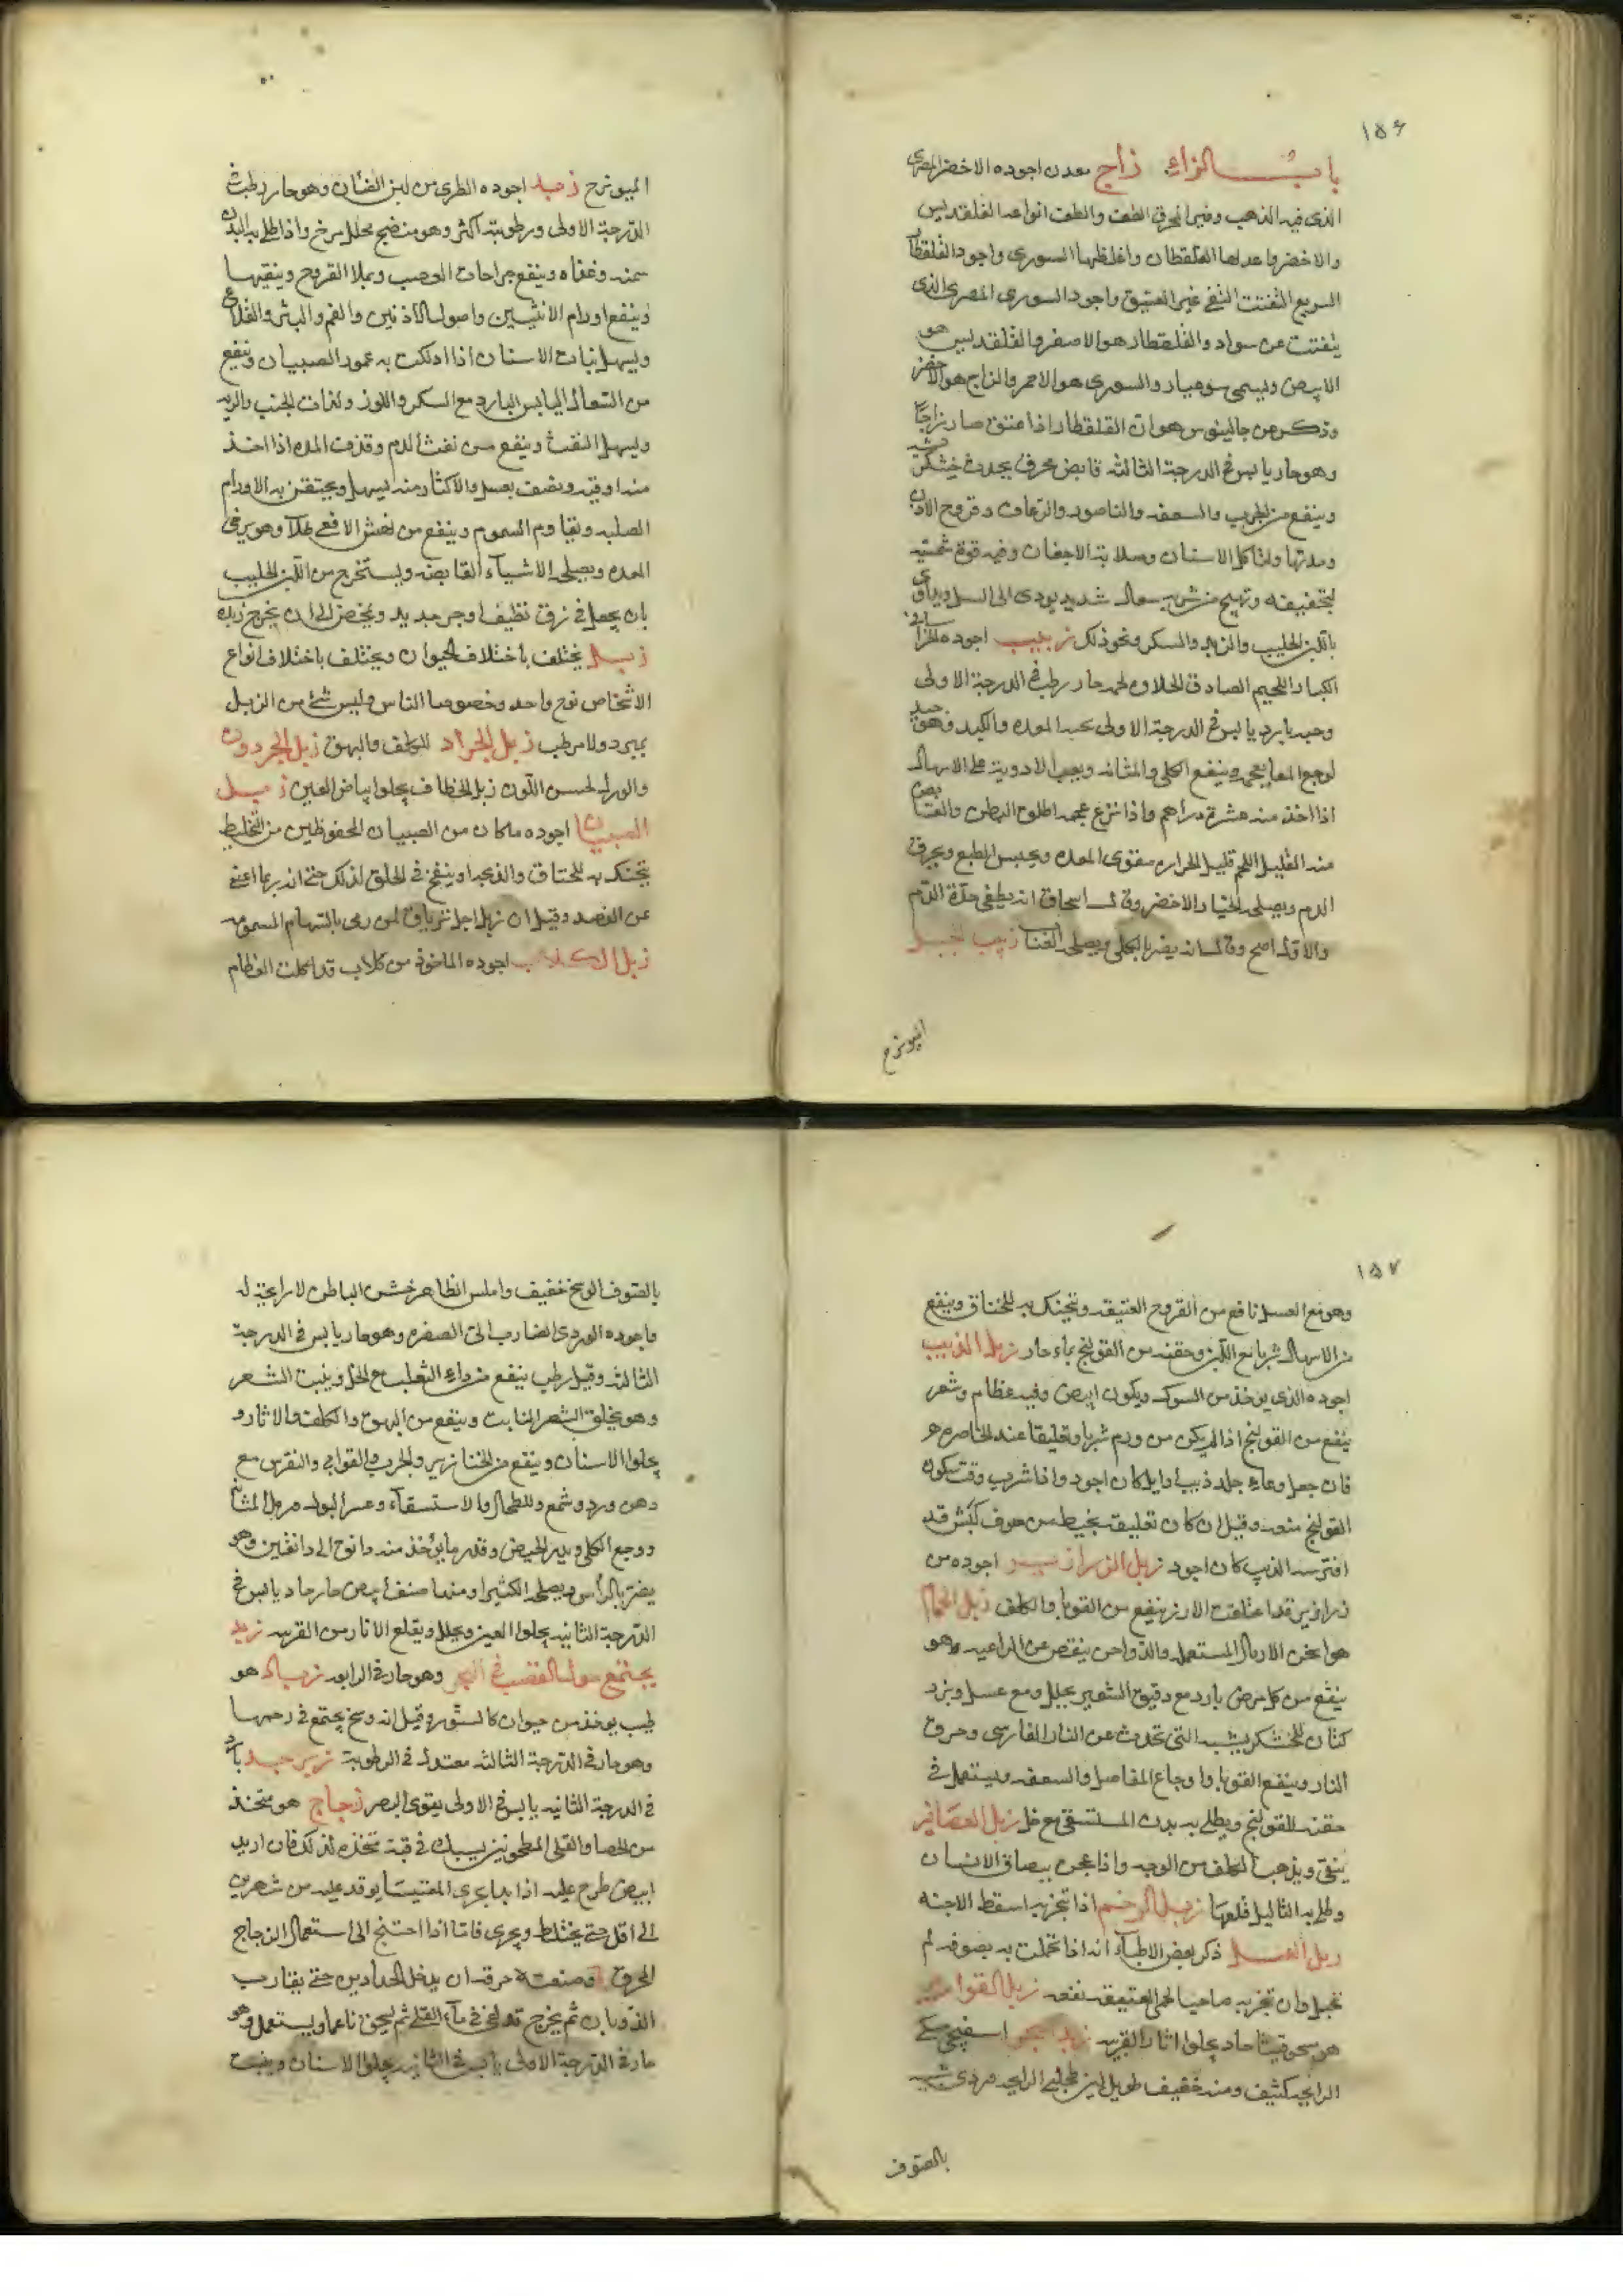 ١٥٦
باب الزاء زاج معدن اجوده الاخضر المصرى
الذى فيه الذهب وغير المحرق الطف والطف انواعه القلقديس
والاخضر واعدلها القلقطار واغلظها السورى واجود القلقطار
السريع التفتت النقى غير العتيق واجود السورى المصرى الذى
يتفتت عن سواد والقلقطار هو الاصفر والقلقديس هو
الابيض ويسمى والسورى هو الاحمر والزاج هو الاخضر
وذكر عن جالينوس هو ان القلقطار اذا عتق صار زاجا
وهو حار يابس فى الدرجة الثالثة قابض محرق يحدث خشكريشه
وينفع من الجرب والسعفه والناصور والرعاف وقروح الاذن
ومدتها ولتاكل الاسنان وصلابة الاجفان وفيه قوة سمية
لتجفيفه وتهيج من شربه سعال شديد يودى الى السل ويداوى
باللبن الحليب والزبد والسكر ونحو ذلك زبيب اجوده الخراسانى
الكبار اللحيم الصادق الحلاوه لحمه حار رطب فى الدرجة الاولى
وحبه بارد يابس فى الدرجة الاولى يحب المعده والكبد وهو جيد
لوجع المعا بعجمه وينفع الكلى والمثانه ويعين الادوية على الاسهال
اذا اخذ منه عشرة دراهم واذا نزع عجمه اطلق البطن والقابض
منه القليل اللحم قليل الحراره مقوى المعده ويحبس الطبع ويحرق
الدم ويصلحه الخيار الاخضر وقال اسحاق انه يطفى حدة الدم
والاول اصح وقال انه يضر بالكلى ويصلحه العناب زبيب الجبل
الميويزج
الميويزج زبد اجوده الطرى من لبن الضان وهو حار رطب فى
الدرجة الاولى ورطوبته اكثر وهو منضج محلل مرخ واذا طلى به البدن
سمنه وغذاه وينفع جراحات العصب ويملا القروح وينقيها
وينفع اورام الانثيين واصول الاذنين والفم والبثر والقلاع
ويسهل نبات الاسنان اذا دلكت به عمور الصبيان وينفع
من السعال اليابس البارد مع السكر واللوز ولذات الجنب والريه
ويسهل النفث وينفع من نفث الدم وقذف المده اذا اخذ
منه اوقيه ونصف بعسل والاكثار منه يسهل ويحتقن به الاورام
الصلبه ويقاوم السموم وينفع من نهش الافعى طلآ وهو يرخى
المعده ويصلحه الاشياء القابضه ويستخرج من اللبن الحليب
بان يجعل فى زق نظيف او جر جديد ويمخض الى ان يخرج زبده
زبل يختلف باختلاف الحيوان ويختلف باختلاف انواع
الاشخاص نوع واحد وخصوصا الناس وليس شئ من الزبل
يبرد ولا مرطب زبل الجراد للكلف والبهق زبل الحردون
والورل لحسن اللون زبل الخطاف يجلوا بياض العين زبل
الصبيان اجوده ما كان من الصبيان المحفوظين من التخليط
يتحنك به للخناق والذبحه او ينفخ فى الحلق لذلك حتى انه ربما اغنى
عن الفصد وقيل ان زبل اجل ترياق لمن رمى بالسهام المسمومه
زبل الكلاب اجوده الماخوذ من كلاب قد اكلت العظام
١٥٧
وهو مع العسل نافع من القروح العتيقه ويتحنك به للخناق وينفع
من الاسهال شربا مع اللبن وحقنه من القولنج بماء حار زبل الذيب
اجوده الذى يوخذ من الشوك ويكون ابيض وفيه عظام وشعر
ينفع من القولنج اذا لم يكن من ورم شربا وتعليقا عند الخاصره
فان جعل وعاءه جلد ذيب او ايل كان اجود واذا شرب وقت سكون
القولنج منعه وقيل ان كان تعليقه بخيط من صوف كبش قد
افترسه الذيب كان اجود زبل الزرازير اجوده من
زرازير قد اعتلفت الارز ينفع من القوبا والكلف زبل الحمام
هو اسخن الازبال المستعمله والدواجن ينقص عن الراعيه وهو
ينفع من كل مرض بارد مع دقيق الشعير يحلل ومع عسل وبزر
كتان للخشكريشه التى تحدث عن النار الفارسى وحرق
النار وينفع القوبا واوجاع المفاصل والسعفه ويستعمل فى
حقنه للقولنج ويطلى به بدن المستسقى مع خل زبل العصافير
ينقى ويذهب الكلف من الوجه واذا عجن ببصاق الانسان
وطلى به الثاليل قلعها زبل الرخم اذا تبخر به اسقط الاجنه
زبل ذكر بعض الاطباء انه اذا تحملت به بصوفه لم
تحبل وان تبخر به صاحب الحمى العتيقه نفعه زبل
هو حاد يجلوا اثار القرنيه زبد البحر اسفنجى سمكى
الرايحه كثيف ومنه خفيف طويل لين طحلبى الرايحه وردى شبيه
بالصوف
بالصوف الوسخ خفيف واملس الظاهر خشن الباطن لا رايحة له
واجوده الوردى الضارب الى الصفره وهو حار يابس فى الدرجة
الثالثه وقيل رطب ينفع من داء الثعلب مع الخل وينبت الشعر
وهو يحلق الشعر النابت وينفع من البهق والكلف والاثار و
يجلوا الاسنان وينفع من الخنازير والجرب والقوابى والنقرس مع
دهن ورد وشمع وللطحال والاستسقاء وعسر البول ورمل المثانه
ووجع الكلى ويدر الحيض وقدر ما يؤخذ منه دانق الى دانقين وهو
يضر بالراس ويصلحه الكثيرا ومنها صنف ابيض حار حاد يابس فى
الدرجة الثانيه يجلوا العين ويحلل ويقلع الاثار من القرنيه زبد
يجتمع حول القصب فى البحر وهو حار فى الرابعه زباد هو
طيب يوخذ من حيوان كالسنور وقيل انه وسخ يجتمع فى رحمها
وهو حار فى الدرجة الثالثه معتدل فى الرطوبة زبرجد بارد
فى الدرجة الثانيه يابس فى الاولى يقوى البصر زجاج هو متخذ
من الحصا والقلى المطحونين يسبك فى قبة تتخذ له لذلك فان اريد
ابيض طرح عليه اذا بدا يجرى المغنيسا يوقد عليه من شهرين
الى اقل حتى يختلط ويجرى فاما اذا احتيج الى استعمال الزجاج
المحرق فصنعة حرقه ان يدخل الحدادين حتى يقارب
الذوبان ثم يخرج فى ماء القلى ثم يسحق ناعما ويستعمل وهو
حار فى الدرجة الاولى يابس فى الثانيه يجلوا الاسنان وينبت